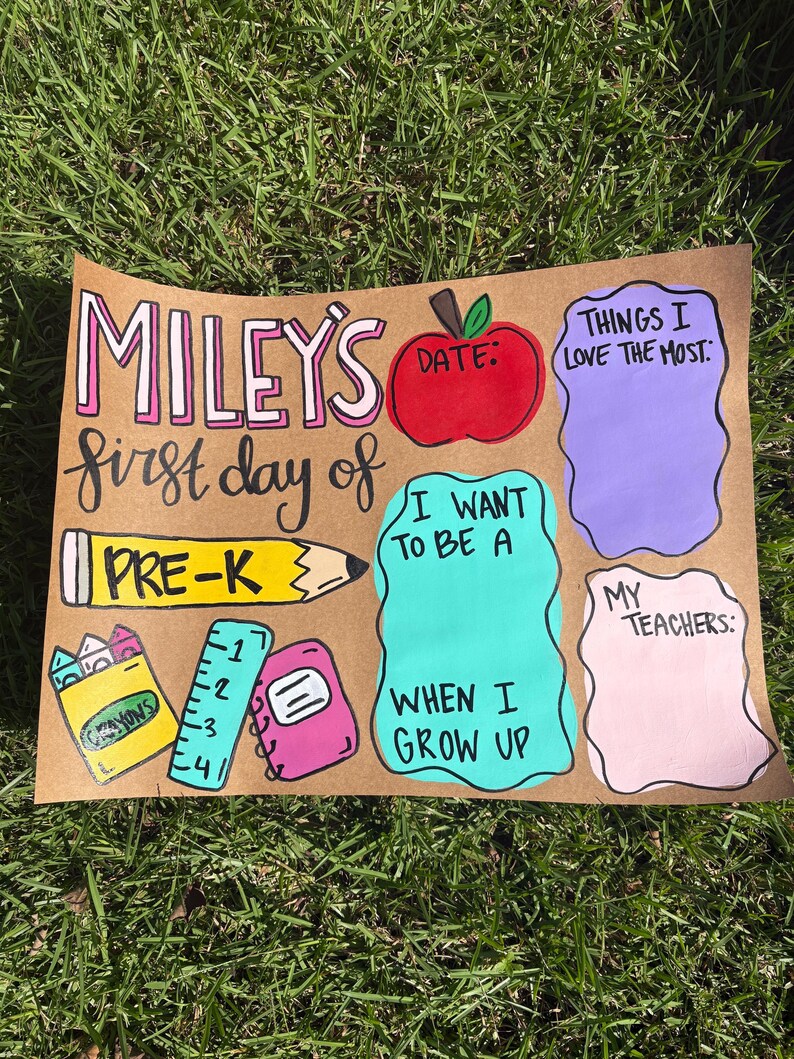 MILEY'S
first day of
PRE-K
CRAYONS
1
2
3
4
DATE:
I WANT
TO BE A
WHEN I
GROW UP
THINGS I
LOVE THE MOST:
MY
TEACHERS: